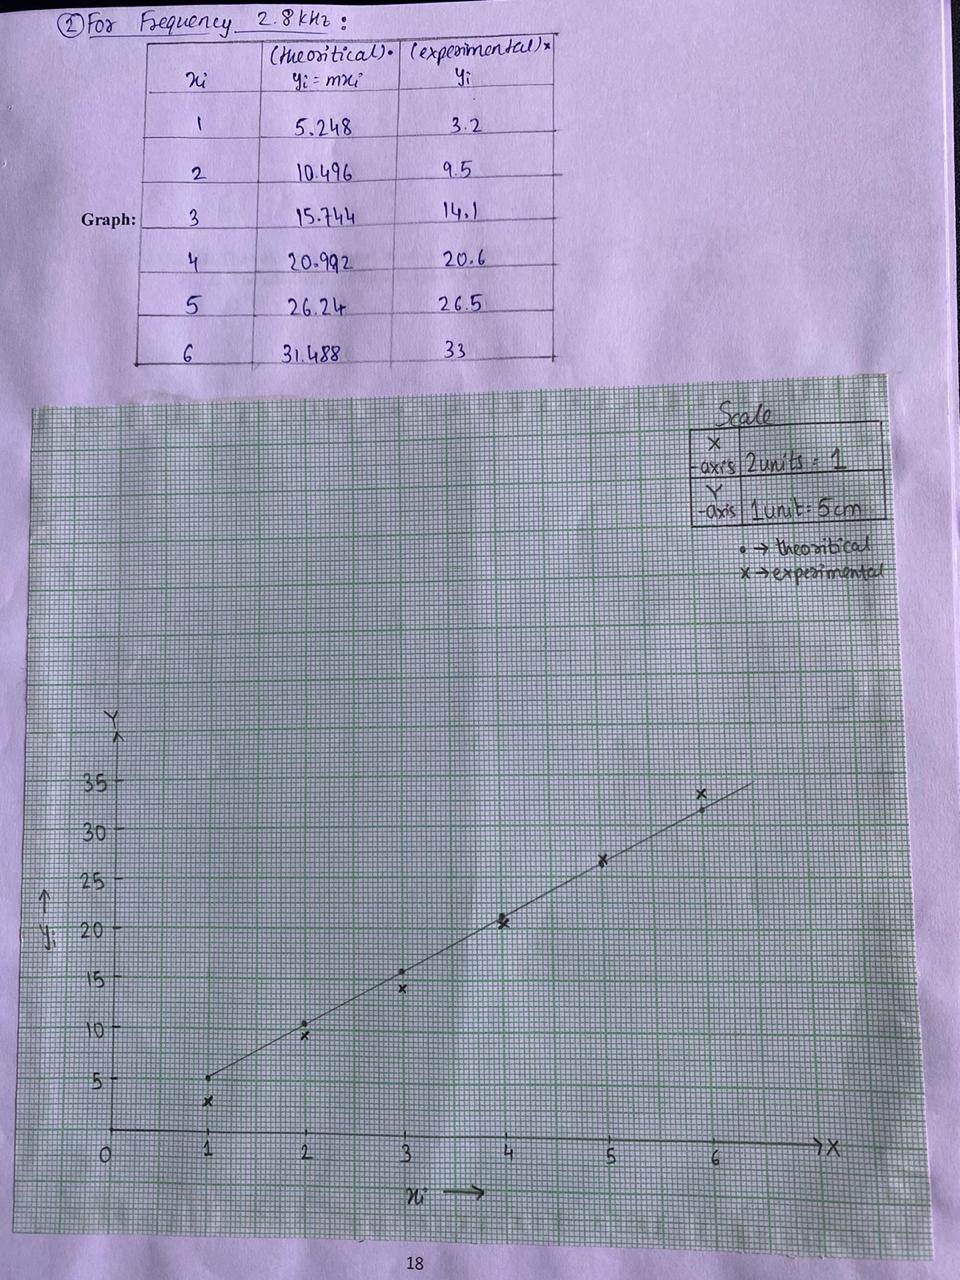 ② For Frequency 2.8kHz :
xi (theoritical)• yi = mxi (experimental)× yi
1 5.248 3.2
2 10.496 9.5
Graph: 3 15.744 14.1
4 20.992 20.6
5 26.24 26.5
6 31.488 33
Scale
X -axis 2units = 1
Y -axis 1unit = 5cm
• → theoritical
× → experimental
Y
35
30
25
↑ yi 20
15
10
5
0 1 2 3 4 5 6 X
xi →
18